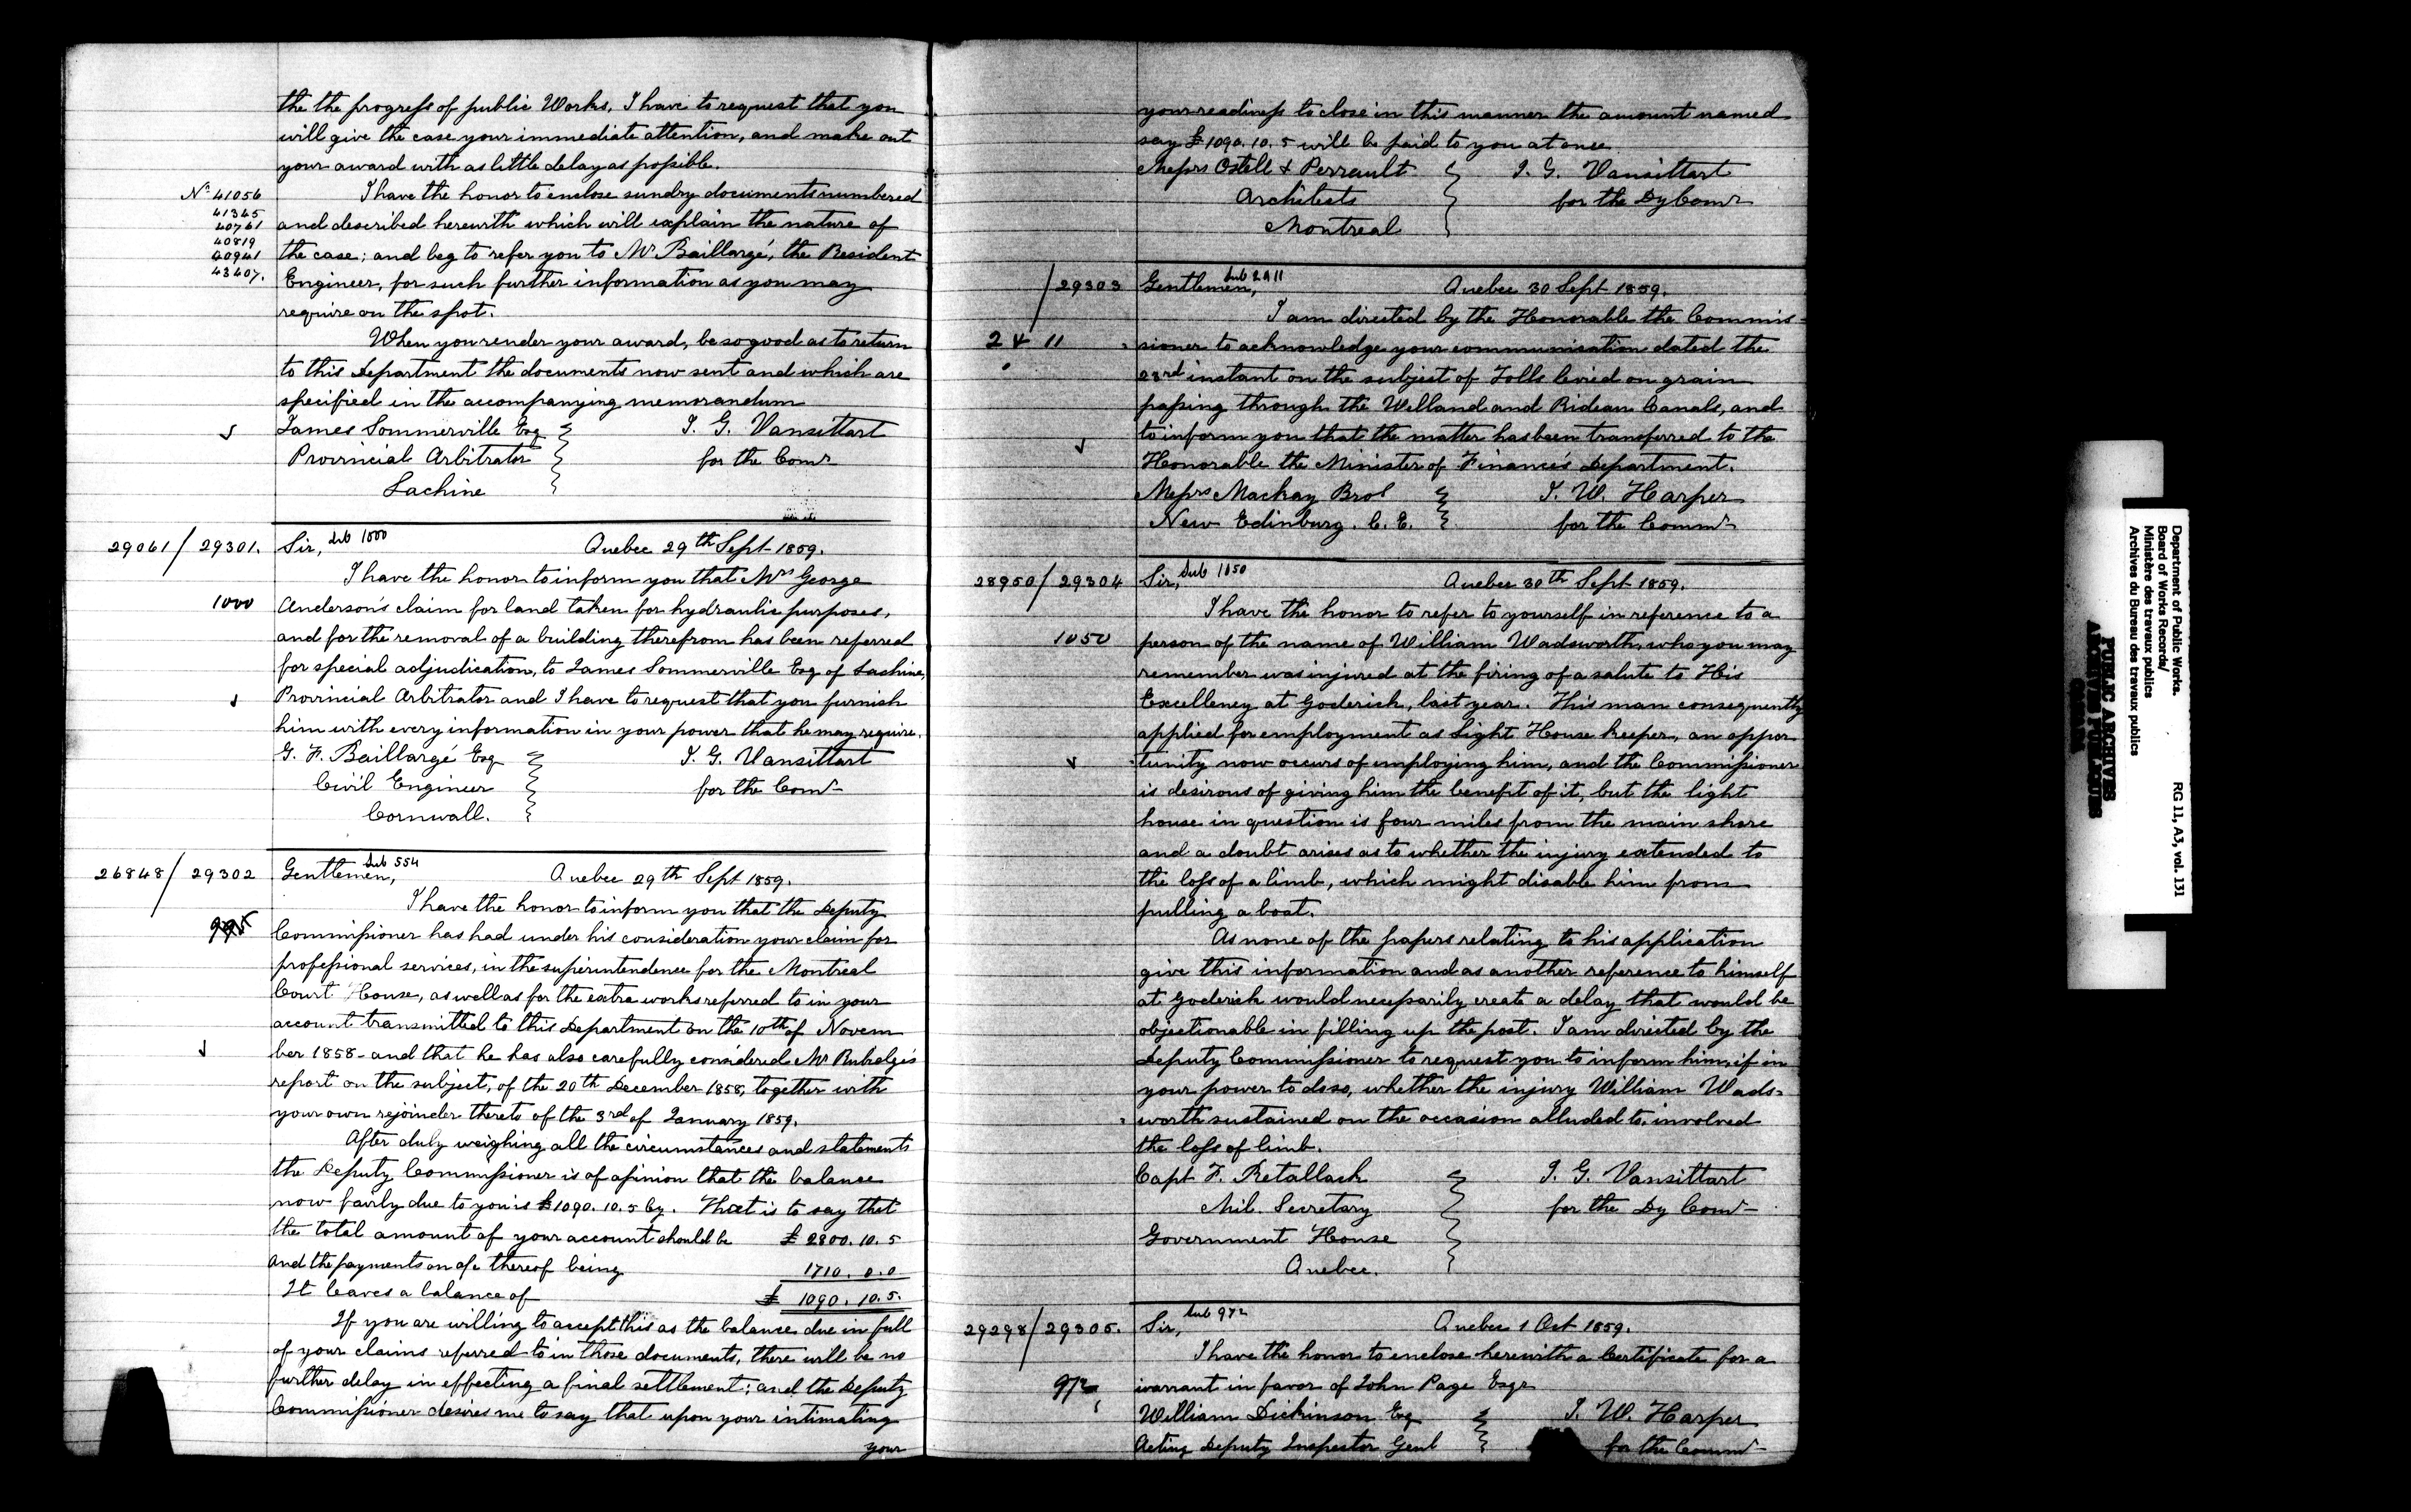 the the progress of public Works, I have to request that you
will give the case your immediate attention, and make out
your award with as little delay as possible.
No 41056
41345
40761
40819
40941
43407.
I have the honor to enclose sundry documents numbered
and described herewith which will explain the nature of
the case; and beg to refer you to Mr. Baillargé, the Resident
Engineer, for such further information as you may
require on the spot.
When you render your award, be so good as to return
to this Department the documents now sent and which are
specified in the accompanying memorandum
James Sommerville Esq T. G. Vansittart
Provincial Arbitrator for the Comr
Lachine
29061/29301. Sir, Sub 1000 Quebec 29th Sept 1859.
I have the honor to inform you that Mrs George
1000 Anderson's claim for land taken for hydraulic purposes,
and for the removal of a building therefrom has been referred
for special adjudication, to James Sommerville Esq of Lachine,
Provincial Arbitrator and I have to request that you furnish
him with every information in your power that he may require.
G. F. Baillargé Esq T. G. Vansittart
Civil Engineer for the Comr
Cornwall.
26848/29302 Gentlemen, Sub 554 Quebec 29th Sept 1859.
I have the honor to inform you that the Deputy
Commissioner has had under his consideration your claim for
professional services, in the superintendence for the Montreal
Court House, as well as for the extra works referred to in your
account transmitted to this Department on the 10th of Novem
ber 1858 - and that he has also carefully considered Mr Rubidge's
report on the subject, of the 20th December 1858, together with
your own rejoinder thereto of the 3rd of January 1859.
After duly weighing all the circumstances and statements
the Deputy Commissioner is of opinion that the balance
now fairly due to you is £1090.10.5 Cy. That is to say that
the total amount of your account should be £ 2800.10.5
and the payments on a/c thereof being 1710.0.0
It leaves a balance of £ 1090.10.5.
If you are willing to accept this as the balance due in full
of your claims referred to in those documents, there will be no
further delay in effecting a final settlement; and the Deputy
Commissioner desires me to say that upon your intimating
your
your readiness to close in this manner the amount named
say £1090.10.5 will be paid to you at once
Messrs Ostell & Perrault T. G. Vansittart
Architects for the Dy Comr
Montreal
/29303 Gentlemen, Sub 2411 Quebec 30 Sept 1859.
I am directed by the Honorable the Commis-
2411 sioner to acknowledge your communication dated the
23rd instant on the subject of Tolls levied on grain
passing through the Welland and Rideau Canals, and
to inform you that the matter has been transferred to the
Honorable the Minister of Finance's Department.
Messrs Mackay Bros T. W. Harper
New Edinburg. C. E. for the Commr
28950/29304 Sir, Sub 1050 Quebec 30th Sept 1859.
I have the honor to refer to yourself in reference to a
1050 person of the name of William Wadsworth, who you may
remember was injured at the firing of a salute to His
Excellency at Goderich, last year. This man consequently
applied for employment as Light House keeper, an oppor
tunity now occurs of employing him, and the Commissioner
is desirous of giving him the benefit of it, but the light
house in question is four miles from the main shore
and a doubt arises as to whether the injury extended to
the loss of a limb, which might disable him from
pulling a boat.
As none of the papers relating to his application
give this information and as another reference to himself
at Goderich would necessarily create a delay that would be
objectionable in filling up the post. I am directed by the
Deputy Commissioner to request you to inform him, if in
your power to do so, whether the injury William Wads-
worth sustained on the occasion alluded to, involved
the loss of limb.
Capt F. Retallack T. G. Vansittart
Mil. Secretary for the Dy Comr
Government House
Quebec.
29298/29305. Sir, Sub 972 Quebec 1 Oct 1859.
I have the honor to enclose herewith a Certificate for a
972 warrant in favor of John Page Esqr
William Dickinson Esq T. W. Harper
Acting Deputy Inspector Genl for the Commr
Department of Public Works.
Board of Works Records/
Ministère des travaux publics
Archives du Bureau des travaux publics
RG 11, A3, vol. 131
PUBLIC ARCHIVES
ARCHIVES PUBLIQUES
CANADA